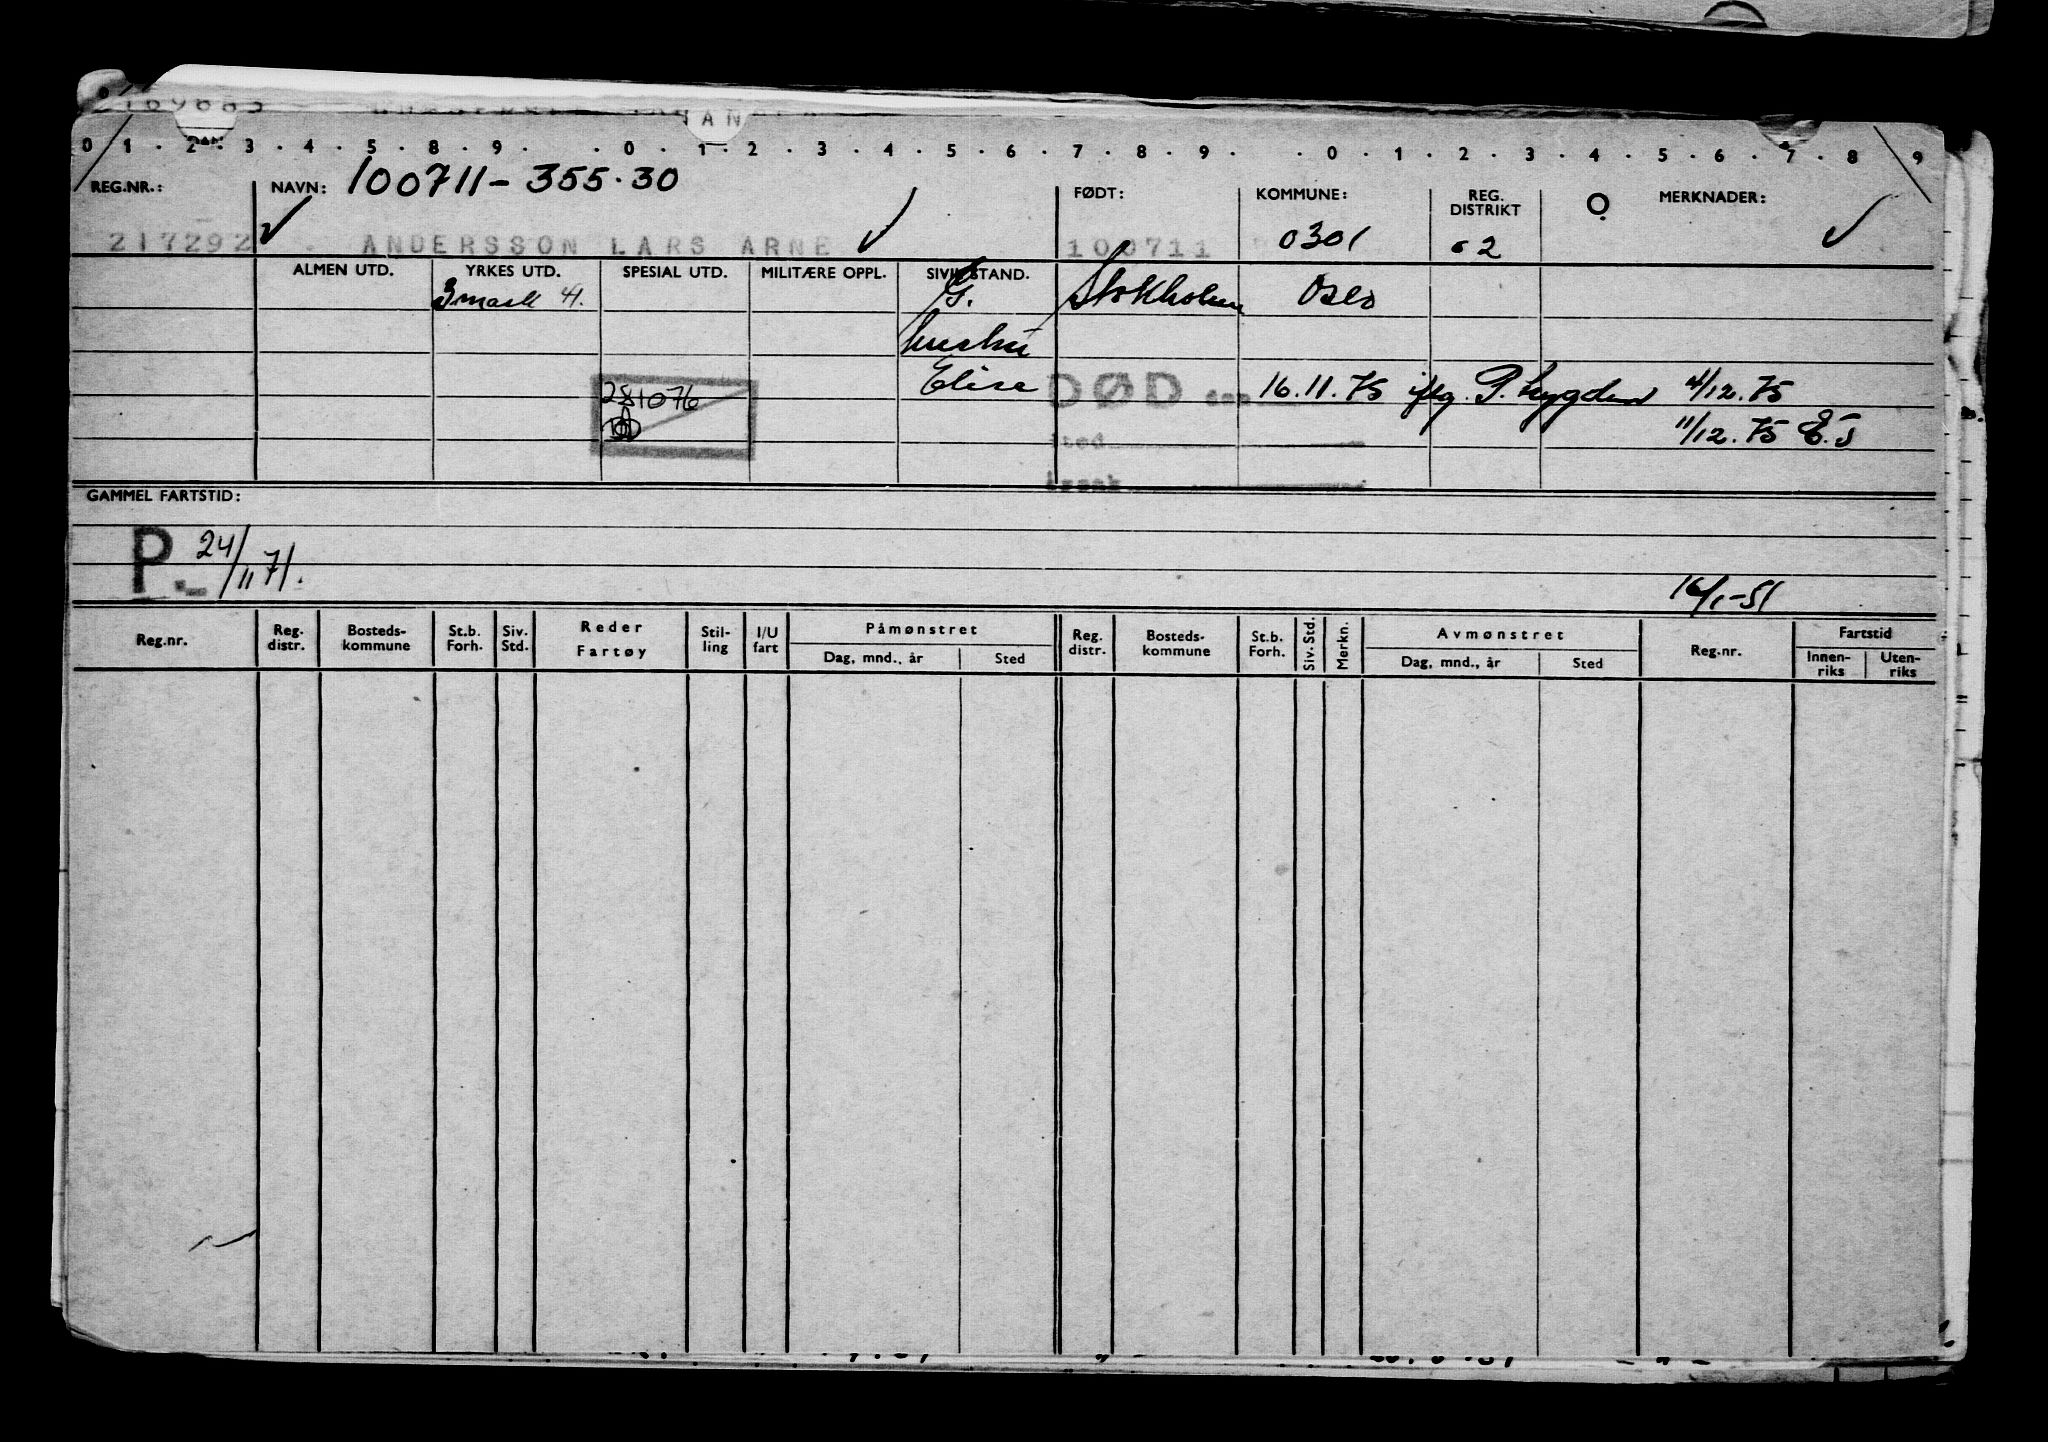 2169683
0 1 . 2 . 3 . 4 . 5 . 8 . 9 . . 0 . 1 . 2 . 3 . 4 . 5 . 6 . 7 . 8 . 9 . . 0 . 1 . 2 . 3 . 4 . 5 . 6 . 7 . 8 . 9
REG.NR.: NAVN: 100711-355.30 FØDT: KOMMUNE: REG. DISTRIKT MERKNADER:
217292 . ANDERSSON LARS ARNE 100711 0301 02
ALMEN UTD. YRKES UTD. SPESIAL UTD. MILITÆRE OPPL. SIVILSTAND.
3 mask 4. G. Stokholm Oslo
hustru
Elise DØD den 16.11.75 iflg. P. 4/12.75
281076 sted 11/12.75 E.J
årsak
GAMMEL FARTSTID:
P.- 24/11 71.
16/1-51
Reg.nr. Reg. distr. Bosteds-kommune St.b. Forh. Siv. Std. Reder Fartøy Stil-ling I/U fart Påmønstret Dag, mnd., år Sted Reg. distr. Bosteds-kommune St.b. Forh. Siv. Std. Merkn. Avmønstret Dag, mnd., år Sted Reg.nr. Fartstid Innen-riks Uten-riks